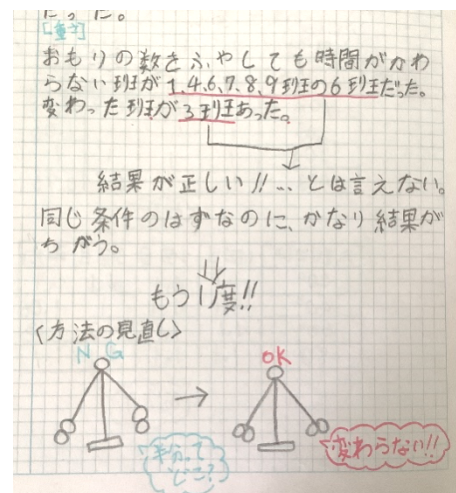 だった。
[重さ]
おもりの数をふやしても時間がかわ
らない班が1,4,6,7,8,9班の6班だった。
変わった班が3班あった。
結果が正しい!!…とは言えない。
同じ条件のはずなのに、かなり結果が
ちがう。
もう1度!!
〈方法の見直し〉
NG
OK
半分って
どこ?
変わらない!!